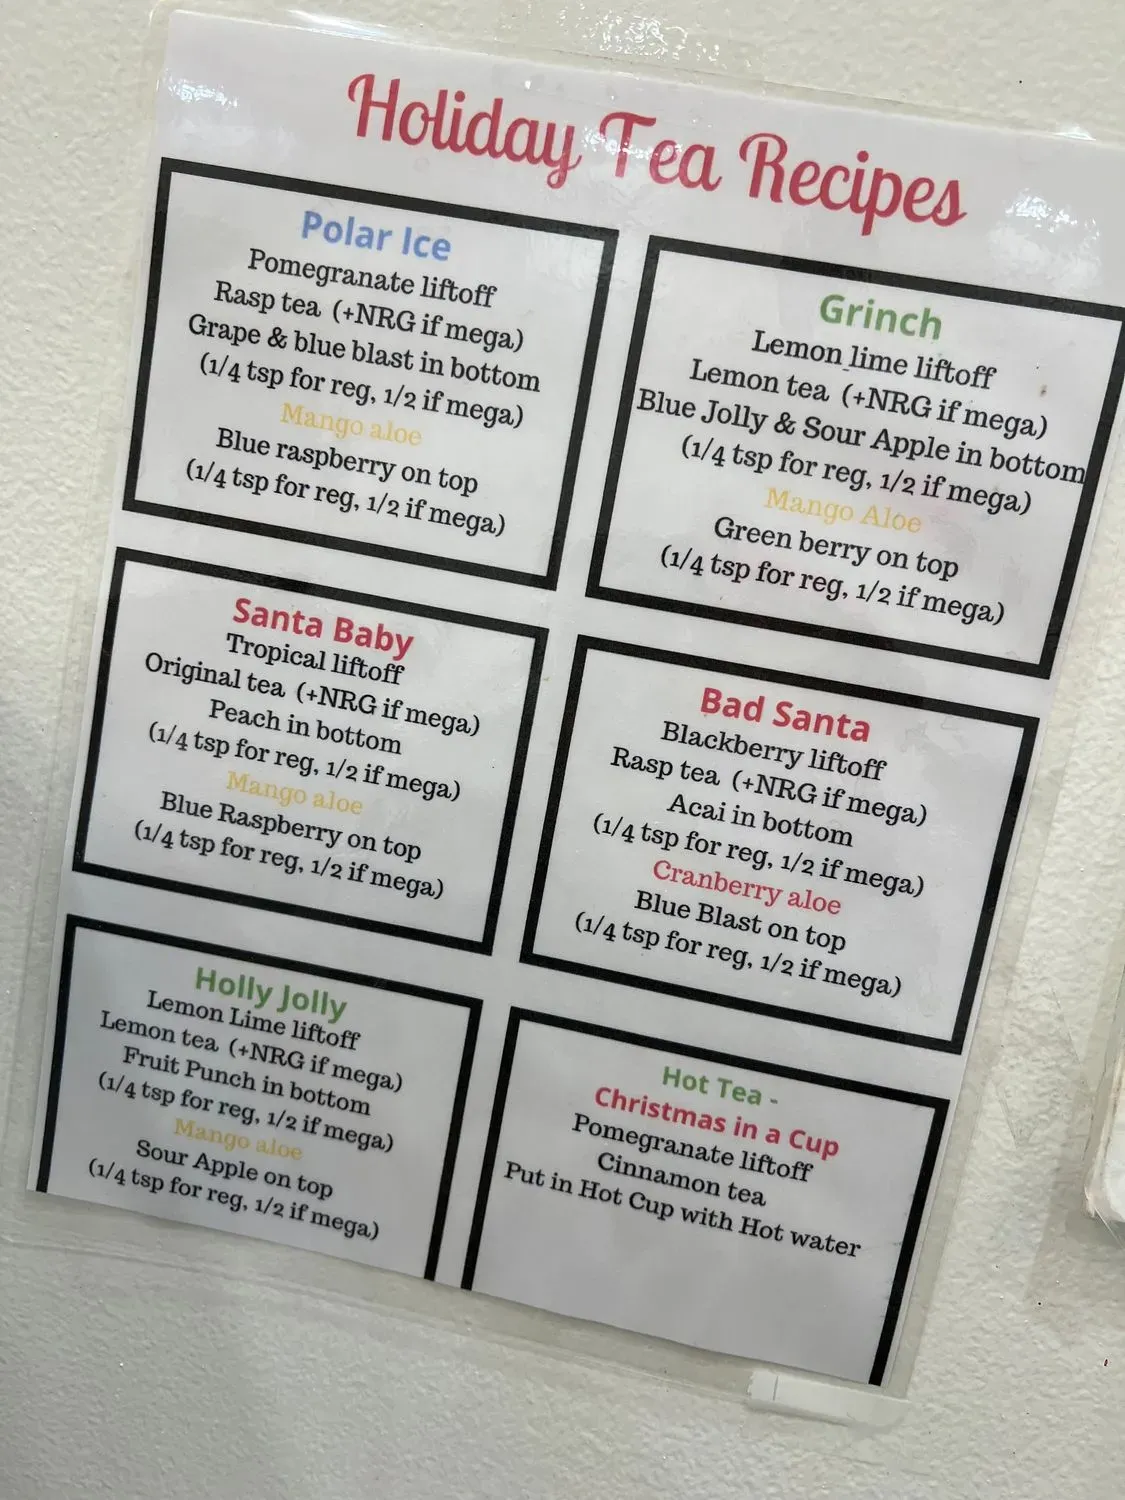 Holiday Tea Recipes
Polar Ice
Pomegranate liftoff
Rasp tea (+NRG if mega)
Grape & blue blast in bottom
(1/4 tsp for reg, 1/2 if mega)
Mango aloe
Blue raspberry on top
(1/4 tsp for reg, 1/2 if mega)
Grinch
Lemon lime liftoff
Lemon tea (+NRG if mega)
Blue Jolly & Sour Apple in bottom
(1/4 tsp for reg, 1/2 if mega)
Mango Aloe
Green berry on top
(1/4 tsp for reg, 1/2 if mega)
Santa Baby
Tropical liftoff
Original tea (+NRG if mega)
Peach in bottom
(1/4 tsp for reg, 1/2 if mega)
Mango aloe
Blue Raspberry on top
(1/4 tsp for reg, 1/2 if mega)
Bad Santa
Blackberry liftoff
Rasp tea (+NRG if mega)
Acai in bottom
(1/4 tsp for reg, 1/2 if mega)
Cranberry aloe
Blue Blast on top
(1/4 tsp for reg, 1/2 if mega)
Holly Jolly
Lemon Lime liftoff
Lemon tea (+NRG if mega)
Fruit Punch in bottom
(1/4 tsp for reg, 1/2 if mega)
Mango aloe
Sour Apple on top
(1/4 tsp for reg, 1/2 if mega)
Hot Tea -
Christmas in a Cup
Pomegranate liftoff
Cinnamon tea
Put in Hot Cup with Hot water